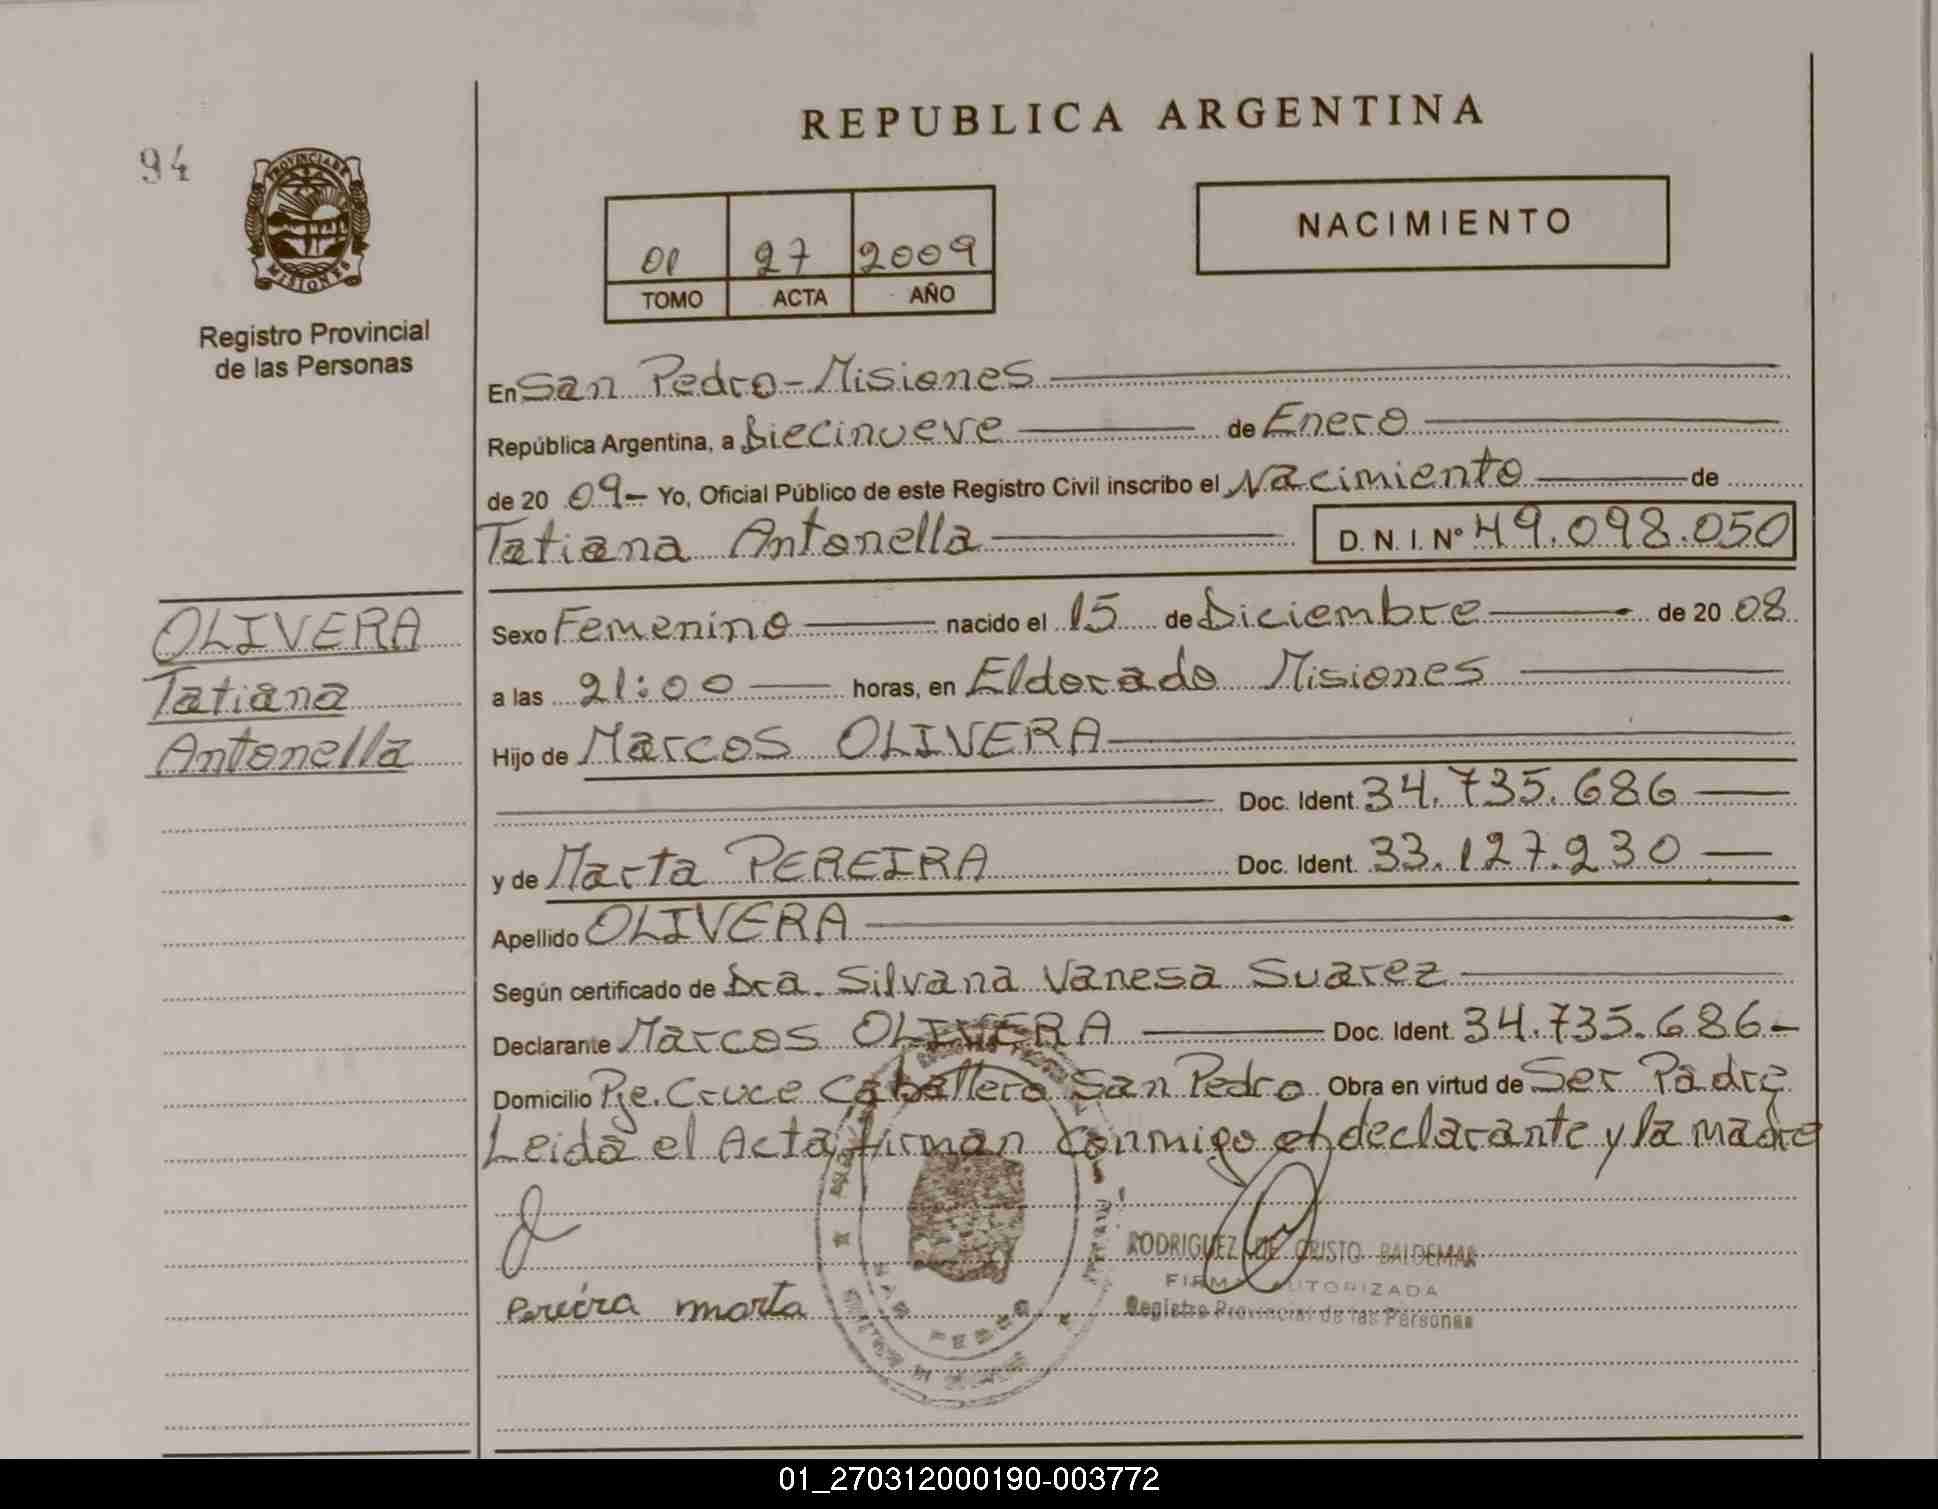 REPUBLICA ARGENTINA
94
PROVINCIA DE
MISIONES
Registro Provincial
de las Personas
01 27 2009
TOMO ACTA AÑO
NACIMIENTO
En San Pedro - Misiones
República Argentina, a Diecinueve de Enero
de 20 09 - Yo, Oficial Público de este Registro Civil inscribo el Nacimiento de
Tatiana Antonella D. N. I. Nº 49.098.050
OLIVERA
Tatiana
Antonella
Sexo Femenino nacido el 15 de Diciembre de 20 08
a las 21:00 horas, en Eldorado Misiones
Hijo de Marcos OLIVERA
Doc. Ident. 34.735.686
y de Marta PEREIRA Doc. Ident. 33.127.230
Apellido OLIVERA
Según certificado de Dra. Silvana Vanesa Suarez
Declarante Marcos OLIVERA Doc. Ident. 34.735.686 -
Domicilio Pje. Cruce Caballero San Pedro Obra en virtud de Ser Padre
Leida el Acta firman conmigo el declarante y la madre
RODRIGUEZ DE CRISTO BALDEMAR
FIRMA AUTORIZADA
Registro Provincial de las Personas
Pereira marta
01_270312000190-003772